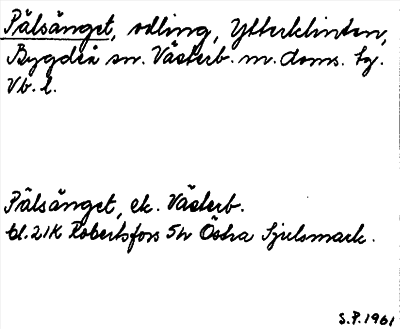 Pålsänget, odling, Ytterklinten,
Bygdeå sn. Västerb. m. doms. tg.
Vb. l.
Pålsänget, ek. Västerb.
bl. 21K Robertsfors 5h Östra Sjulsmark.
S.P. 1961